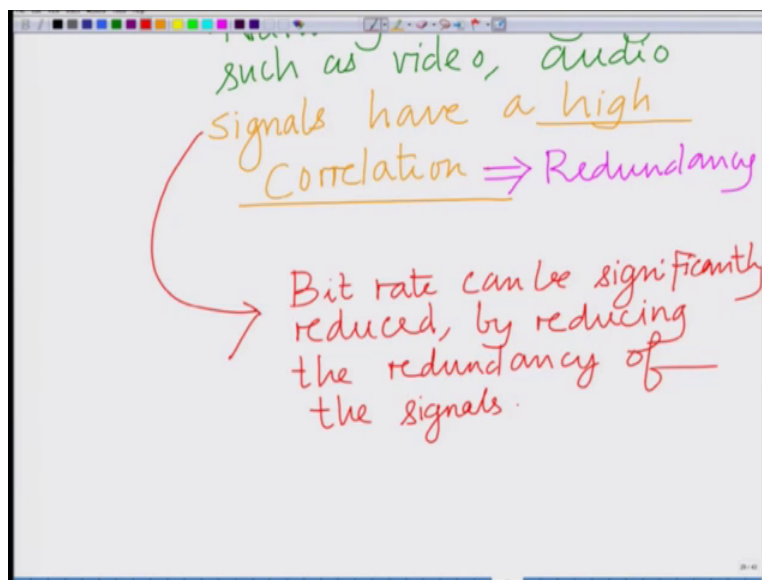 such as video, audio
signals have a high
Correlation ⇒ Redundancy
Bit rate can be significantly
reduced, by reducing
the redundancy of
the signals.